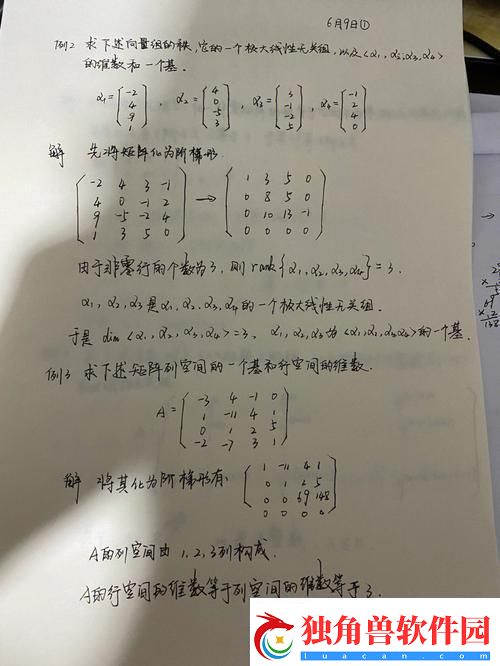 6月9日①
例2 求下述向量组的秩,它的一个极大线性无关组,以及<α₁,α₂,α₃,α₄>
的维数和一个基.
α₁=(-2 4 9 1), α₂=(4 0 -5 3), α₃=(3 -1 -2 5), α₄=(-1 2 4 0)
解 先将矩阵化为阶梯形.
(-2 4 3 -1 → (1 3 5 0
4 0 -1 2 0 8 5 0
9 -5 -2 4 0 10 13 -1
1 3 5 0) 0 0 0 0)
由于非零行的个数为3,则rank{α₁,α₂,α₃,α₄}=3.
α₁,α₂,α₃是α₁,α₂,α₃,α₄的一个极大线性无关组.
于是 dim<α₁,α₂,α₃,α₄>=3, α₁,α₂,α₃为<α₁,α₂,α₃,α₄>的一个基.
例3 求下述矩阵列空间的一个基和行空间的维数.
A=(-3 4 -1 0
1 -11 4 1
0 1 2 5
-2 -7 3 1)
解 将其化为阶梯形有:(1 -11 4 1
0 1 2 5
0 0 69 148
0 0 0 0)
A的列空间由1,2,3列构成.
A的行空间的维数等于列空间的维数等于3.
独角兽软件园
luacan.com